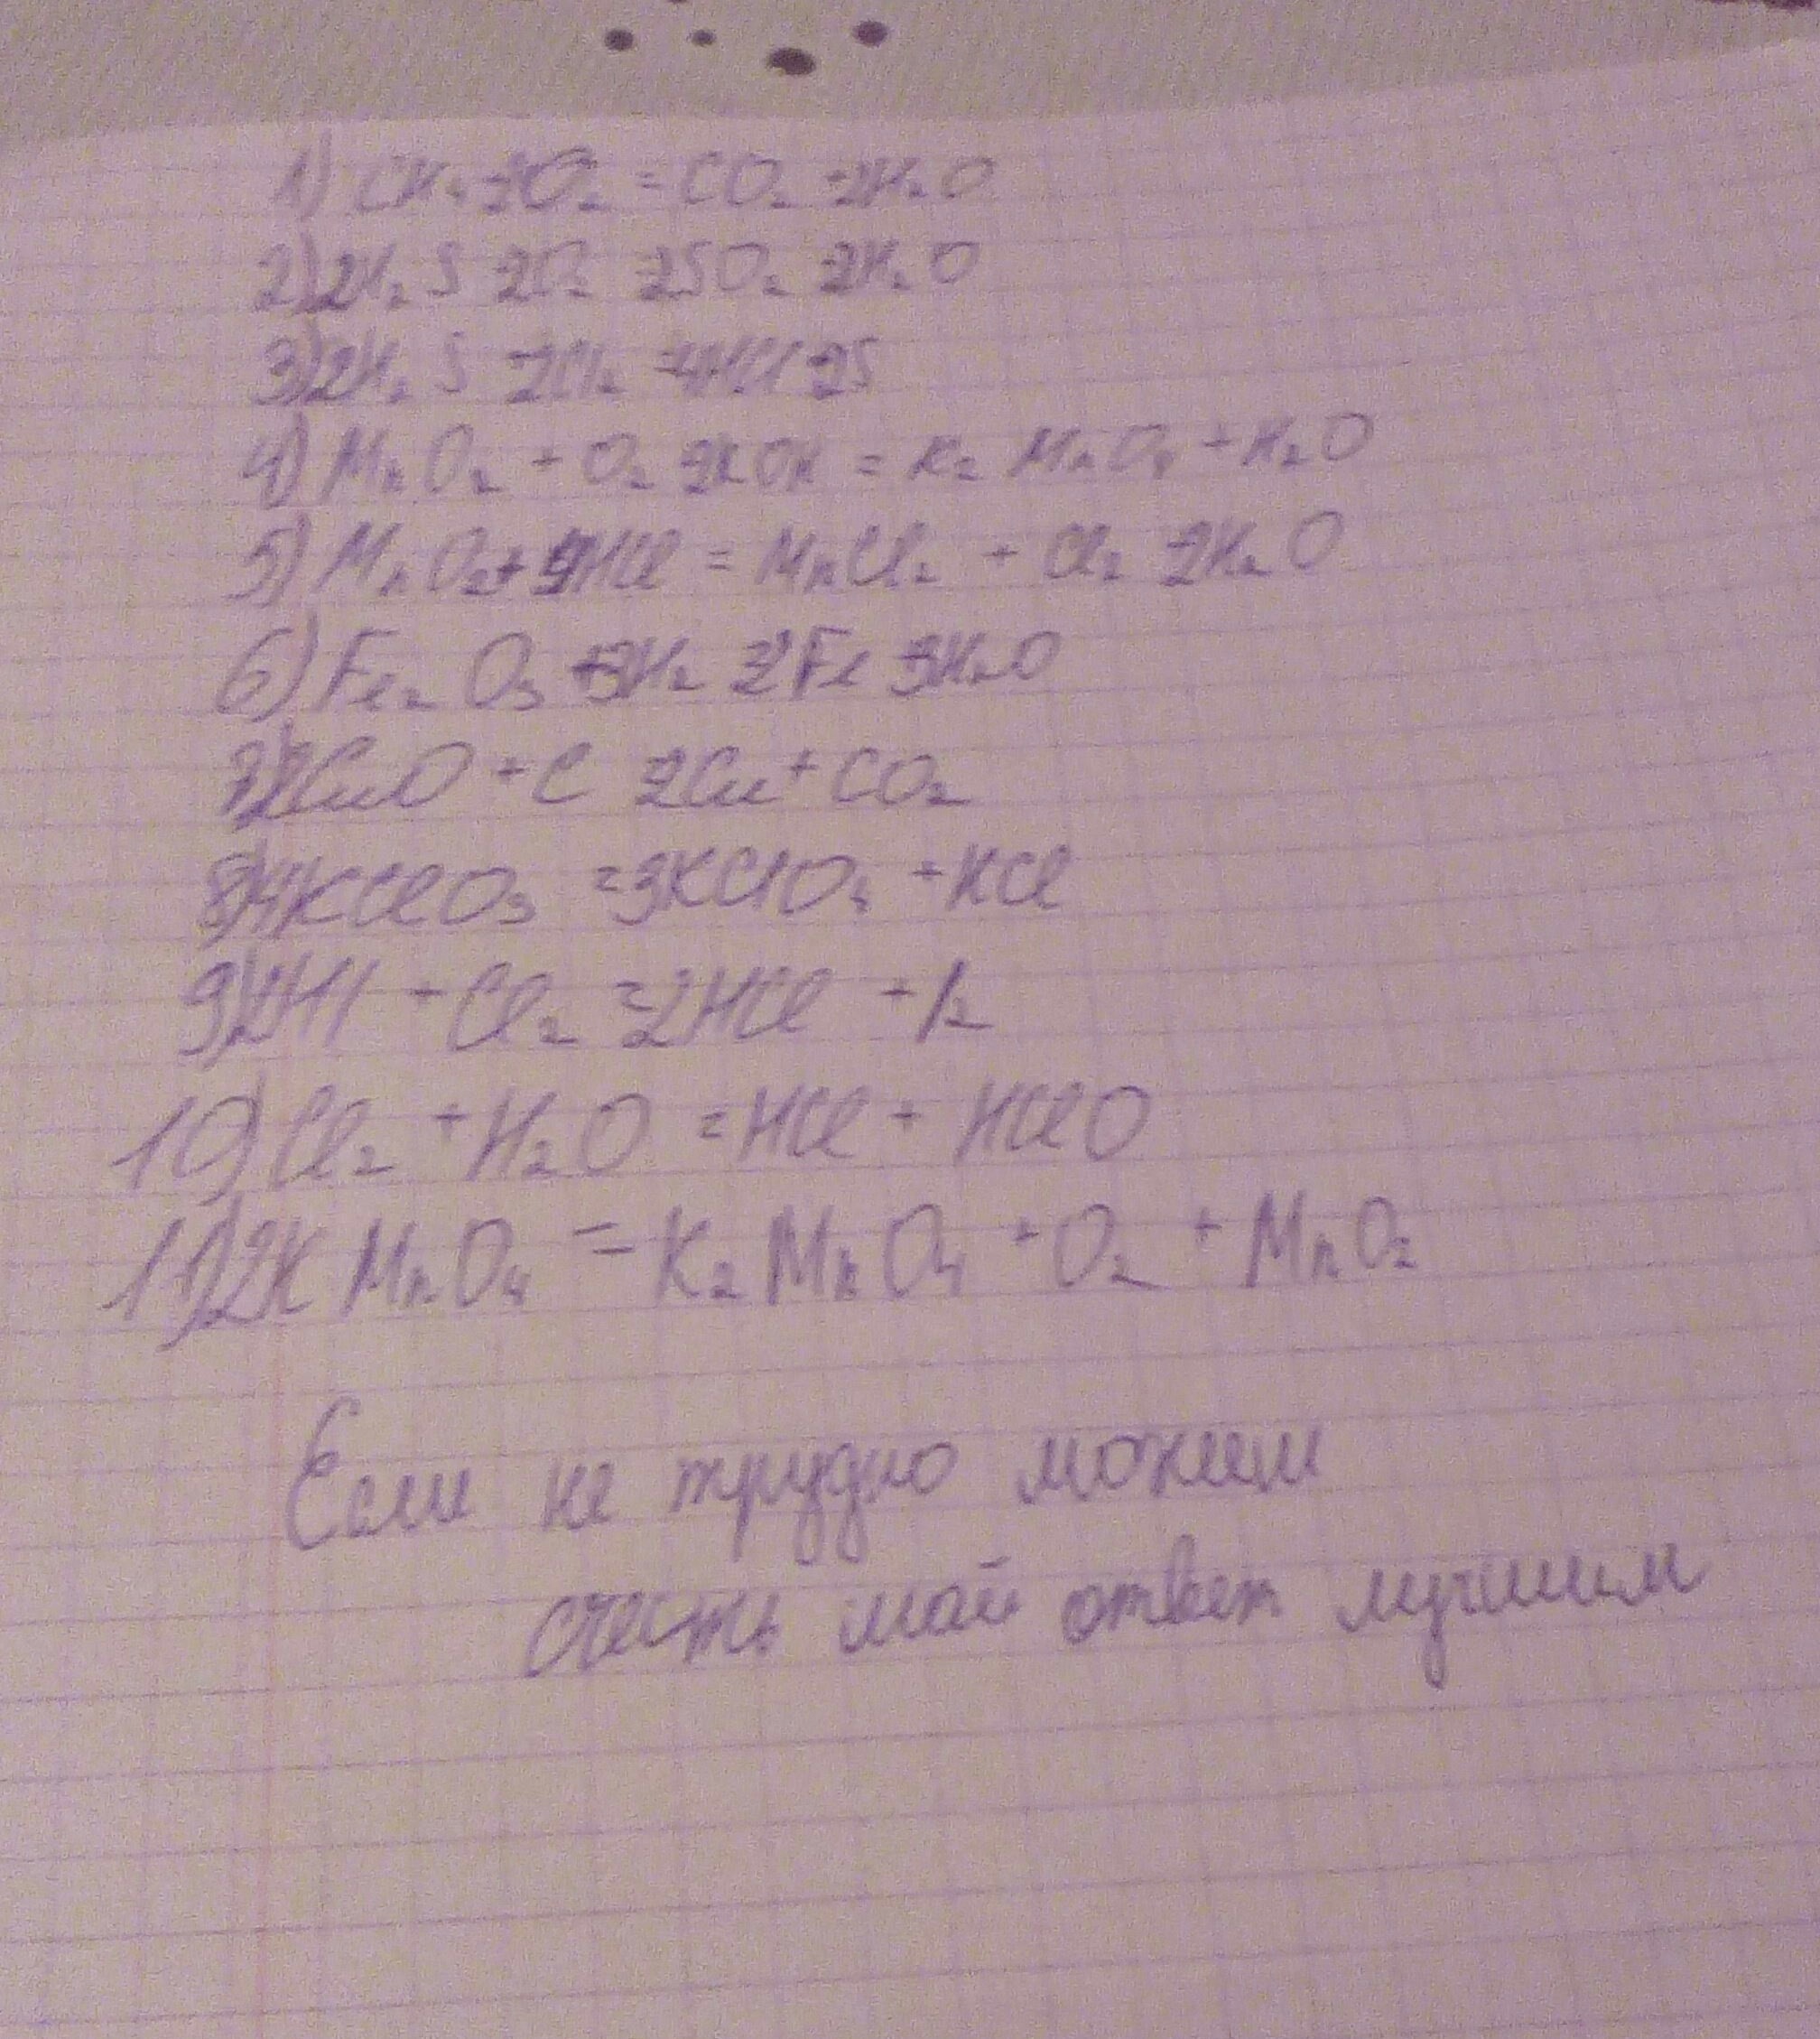 1) CH₄ + 2O₂ = CO₂ + 2H₂O
2) 2H₂S + 2O₂ = 2SO₂ + 2H₂O
3) 2H₂S + 2Cl₂ = 4HCl + 2S
4) MnO₂ + O₂ + 2KOH = K₂MnO₄ + H₂O
5) MnO₂ + 4HCl = MnCl₂ + Cl₂ + 2H₂O
6) Fe₂O₃ + 3H₂ = 2Fe + 3H₂O
7) 2CuO + C = 2Cu + CO₂
8) 4KClO₃ = 3KClO₄ + KCl
9) 2HI + Cl₂ = 2HCl + I₂
10) Cl₂ + H₂O = HCl + HClO
11) 2KMnO₄ = K₂MnO₄ + O₂ + MnO₂
Если не трудно можеш
счесть май ответ лучшим